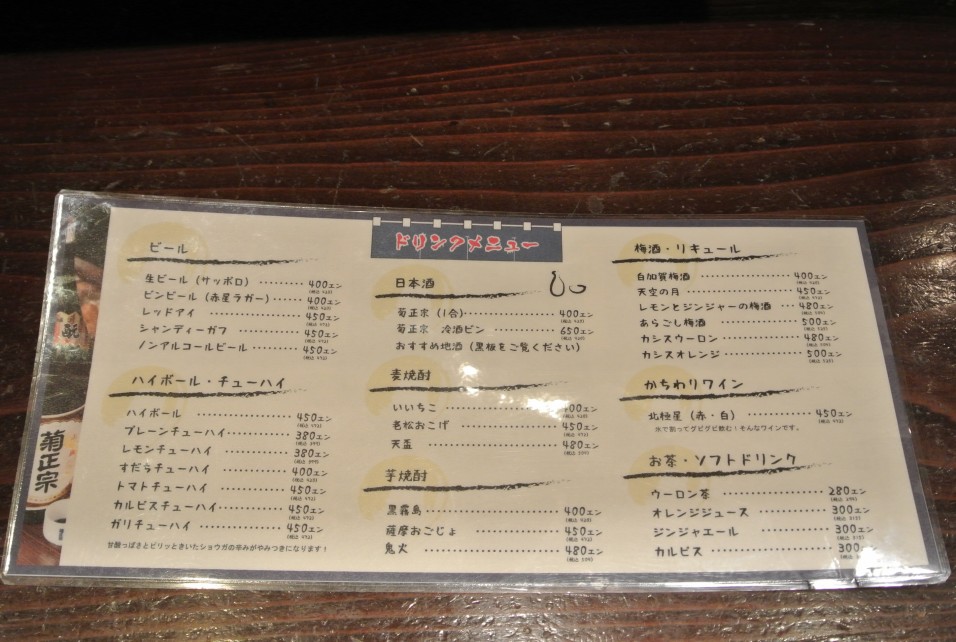 ドリンクメニュー
ビール
生ビール（サッポロ）………400エン
ビンビール（赤星ラガー）………400エン
レッドアイ………450エン
シャンディーガフ………450エン
ノンアルコールビール………450エン
ハイボール・チューハイ
ハイボール………450エン
プレーンチューハイ………380エン
レモンチューハイ………380エン
すだちチューハイ………400エン
トマトチューハイ………450エン
カルピスチューハイ………450エン
ガリチューハイ………450エン
甘酸っぱさとピリッときいたショウガの辛みがやみつきになります！
日本酒
菊正宗（1合）………400エン
菊正宗 冷酒ビン………650エン
おすすめ地酒（黒板をご覧ください）
麦焼酎
いいちこ………400エン
老松おこげ………450エン
天盃………480エン
芋焼酎
黒霧島………400エン
薩摩おごじょ………450エン
鬼火………480エン
梅酒・リキュール
白加賀梅酒………400エン
天空の月………450エン
レモンとジンジャーの梅酒………480エン
あらごし梅酒………500エン
カシスウーロン………480エン
カシスオレンジ………500エン
かちわりワイン
北極星（赤・白）………450エン
氷で割ってグビグビ飲む！そんなワインです。
お茶・ソフトドリンク
ウーロン茶………280エン
オレンジジュース………300エン
ジンジャエール………300エン
カルピス………300
菊正宗